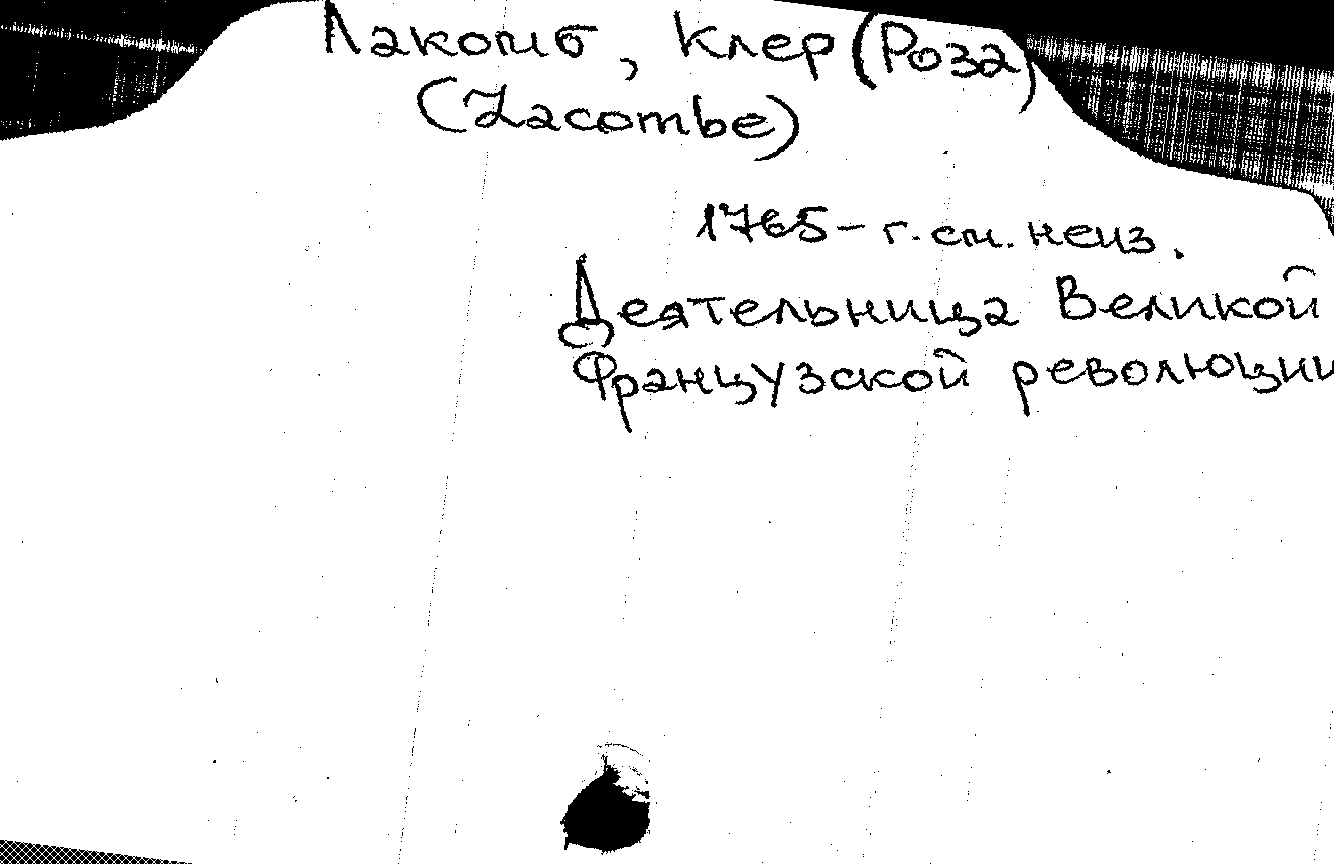 Лакомб, Клер (Роза)
(Lacombe)
1765 – г. см. неиз.
Деятельница Великой
Французской революции